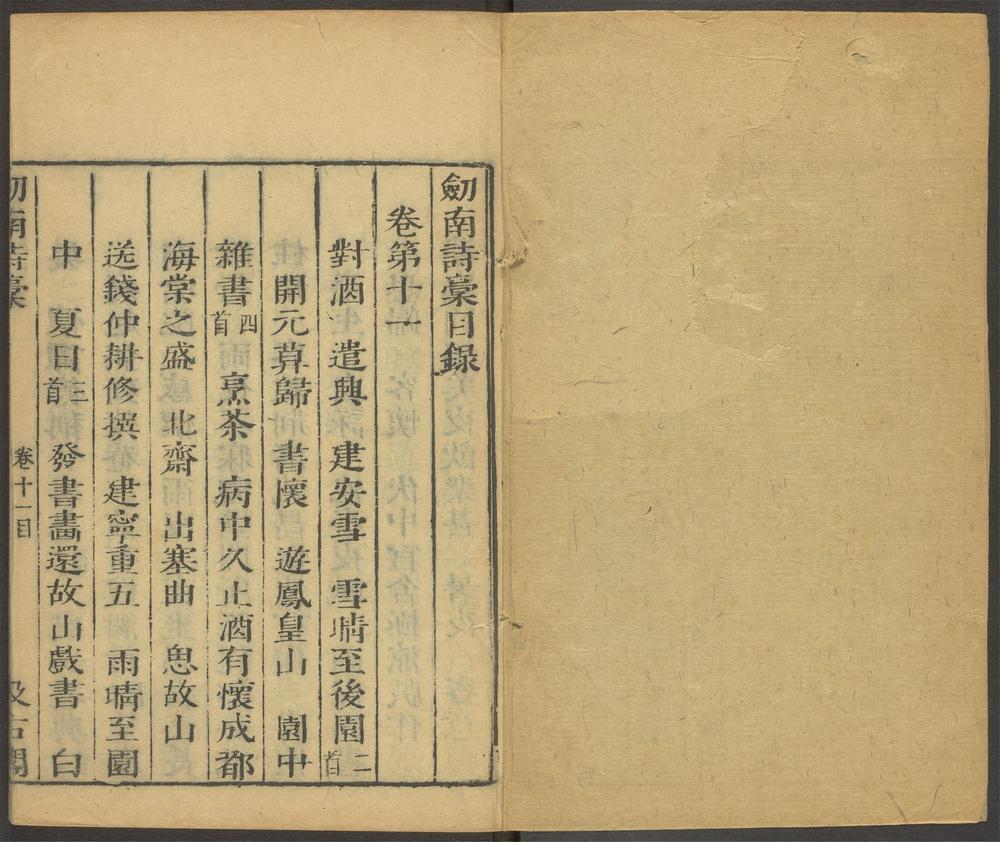 劒南詩稾目録
卷第十一
對酒 遣興 建安雪 雪晴至後園二首
開元暮歸 書懷 遊鳳皇山 園中
雜書四首 烹茶 病中久止酒有懷成都
海棠之盛 北齋 出塞曲 思故山
送錢仲耕修撰 建寧重五 雨晴至園
中 夏日三首 發書畫還故山戲書 白
劒南詩稾 卷十一目 汲古閣